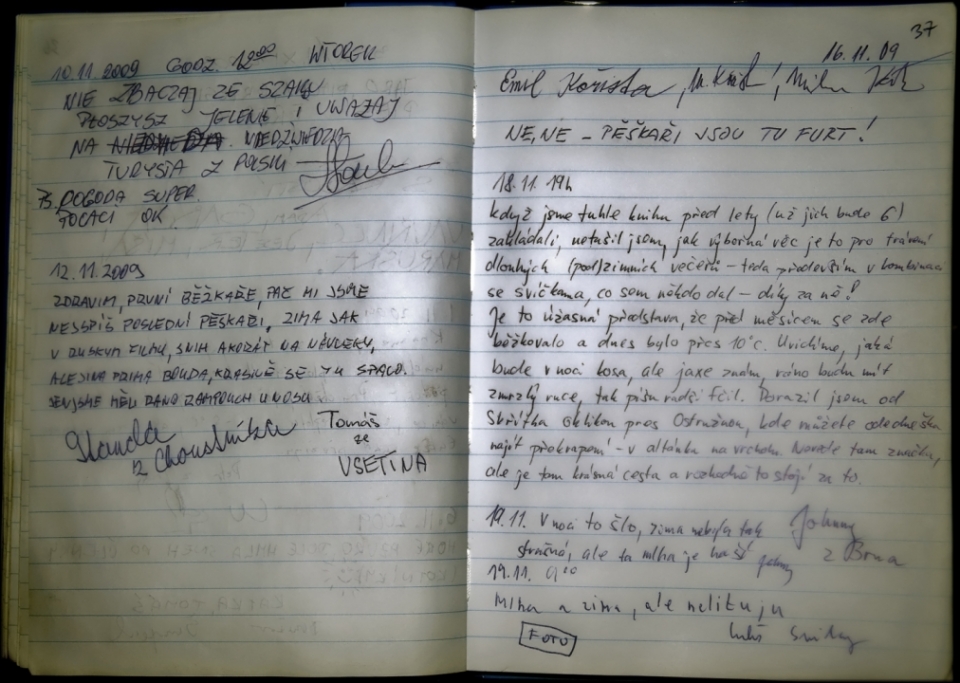 10.11.2009 GODZ. 12⁰⁰ WTOREK
NIE ZBACZAJ ZE SZAKU
PŁOSZYSZ JELENIE I UWAŻAJ
NA NIEDŹWIEDZIA
TURYSTA Z POLSKI
PS. POGODA SUPER.
POCACI OK
12.11.2009
ZDRAVIM, PRVNÍ BĚŽKAŘE, PAČ MI JSME
NEJSPÍŠ POSLEDNÍ PĚŠKAŘI, ZIMA JAK
V RUSKYM FILMU, SNIH AKORÁT NA NÁVLEKY,
ALE JINA PRIMA BOUDA, KRASNĚ SE TU SPALO.
JEN JSME MĚLI RANO RAMPOUCH U NOSU
Standa
z Choustníka
Tomáš
ze
VSETINA
37
16.11.09
Emil Kořistka,
NE, NE – PĚŠKAŘI JSOU TU FURT!
18.11. 19h
když jsme tuhle knihu před lety (už jich bude 6)
zakládali, netušil jsem, jak výborná věc je to pro trávení
dlouhých (pod)zimních večerů – teda především v kombinaci
se svíčkama, co sem někdo dal – díky za ně!
Je to úžasná představa, že před měsícem se zde
běžkovalo a dnes bylo přes 10°C. Uvidíme, jaká
bude v noci kosa, ale jaxe znám, ráno budu mít
zmrzlý ruce, tak píšu radši fčil. Dorazil jsem od
Skřítka oklikou přes Ostružnou, kde můžete odedneška
najít překvapení – v altánku na vrcholu. Nevede tam značka,
ale je tam krásná cesta a rozhodně to stojí za to.
Johnny
z Brna
19.11. V noci to šlo, zima nebyla tak
strašná, ale ta mlha je hustá
19.11. 9⁰⁰
Mlha a zima, ale nelituju
FOTO